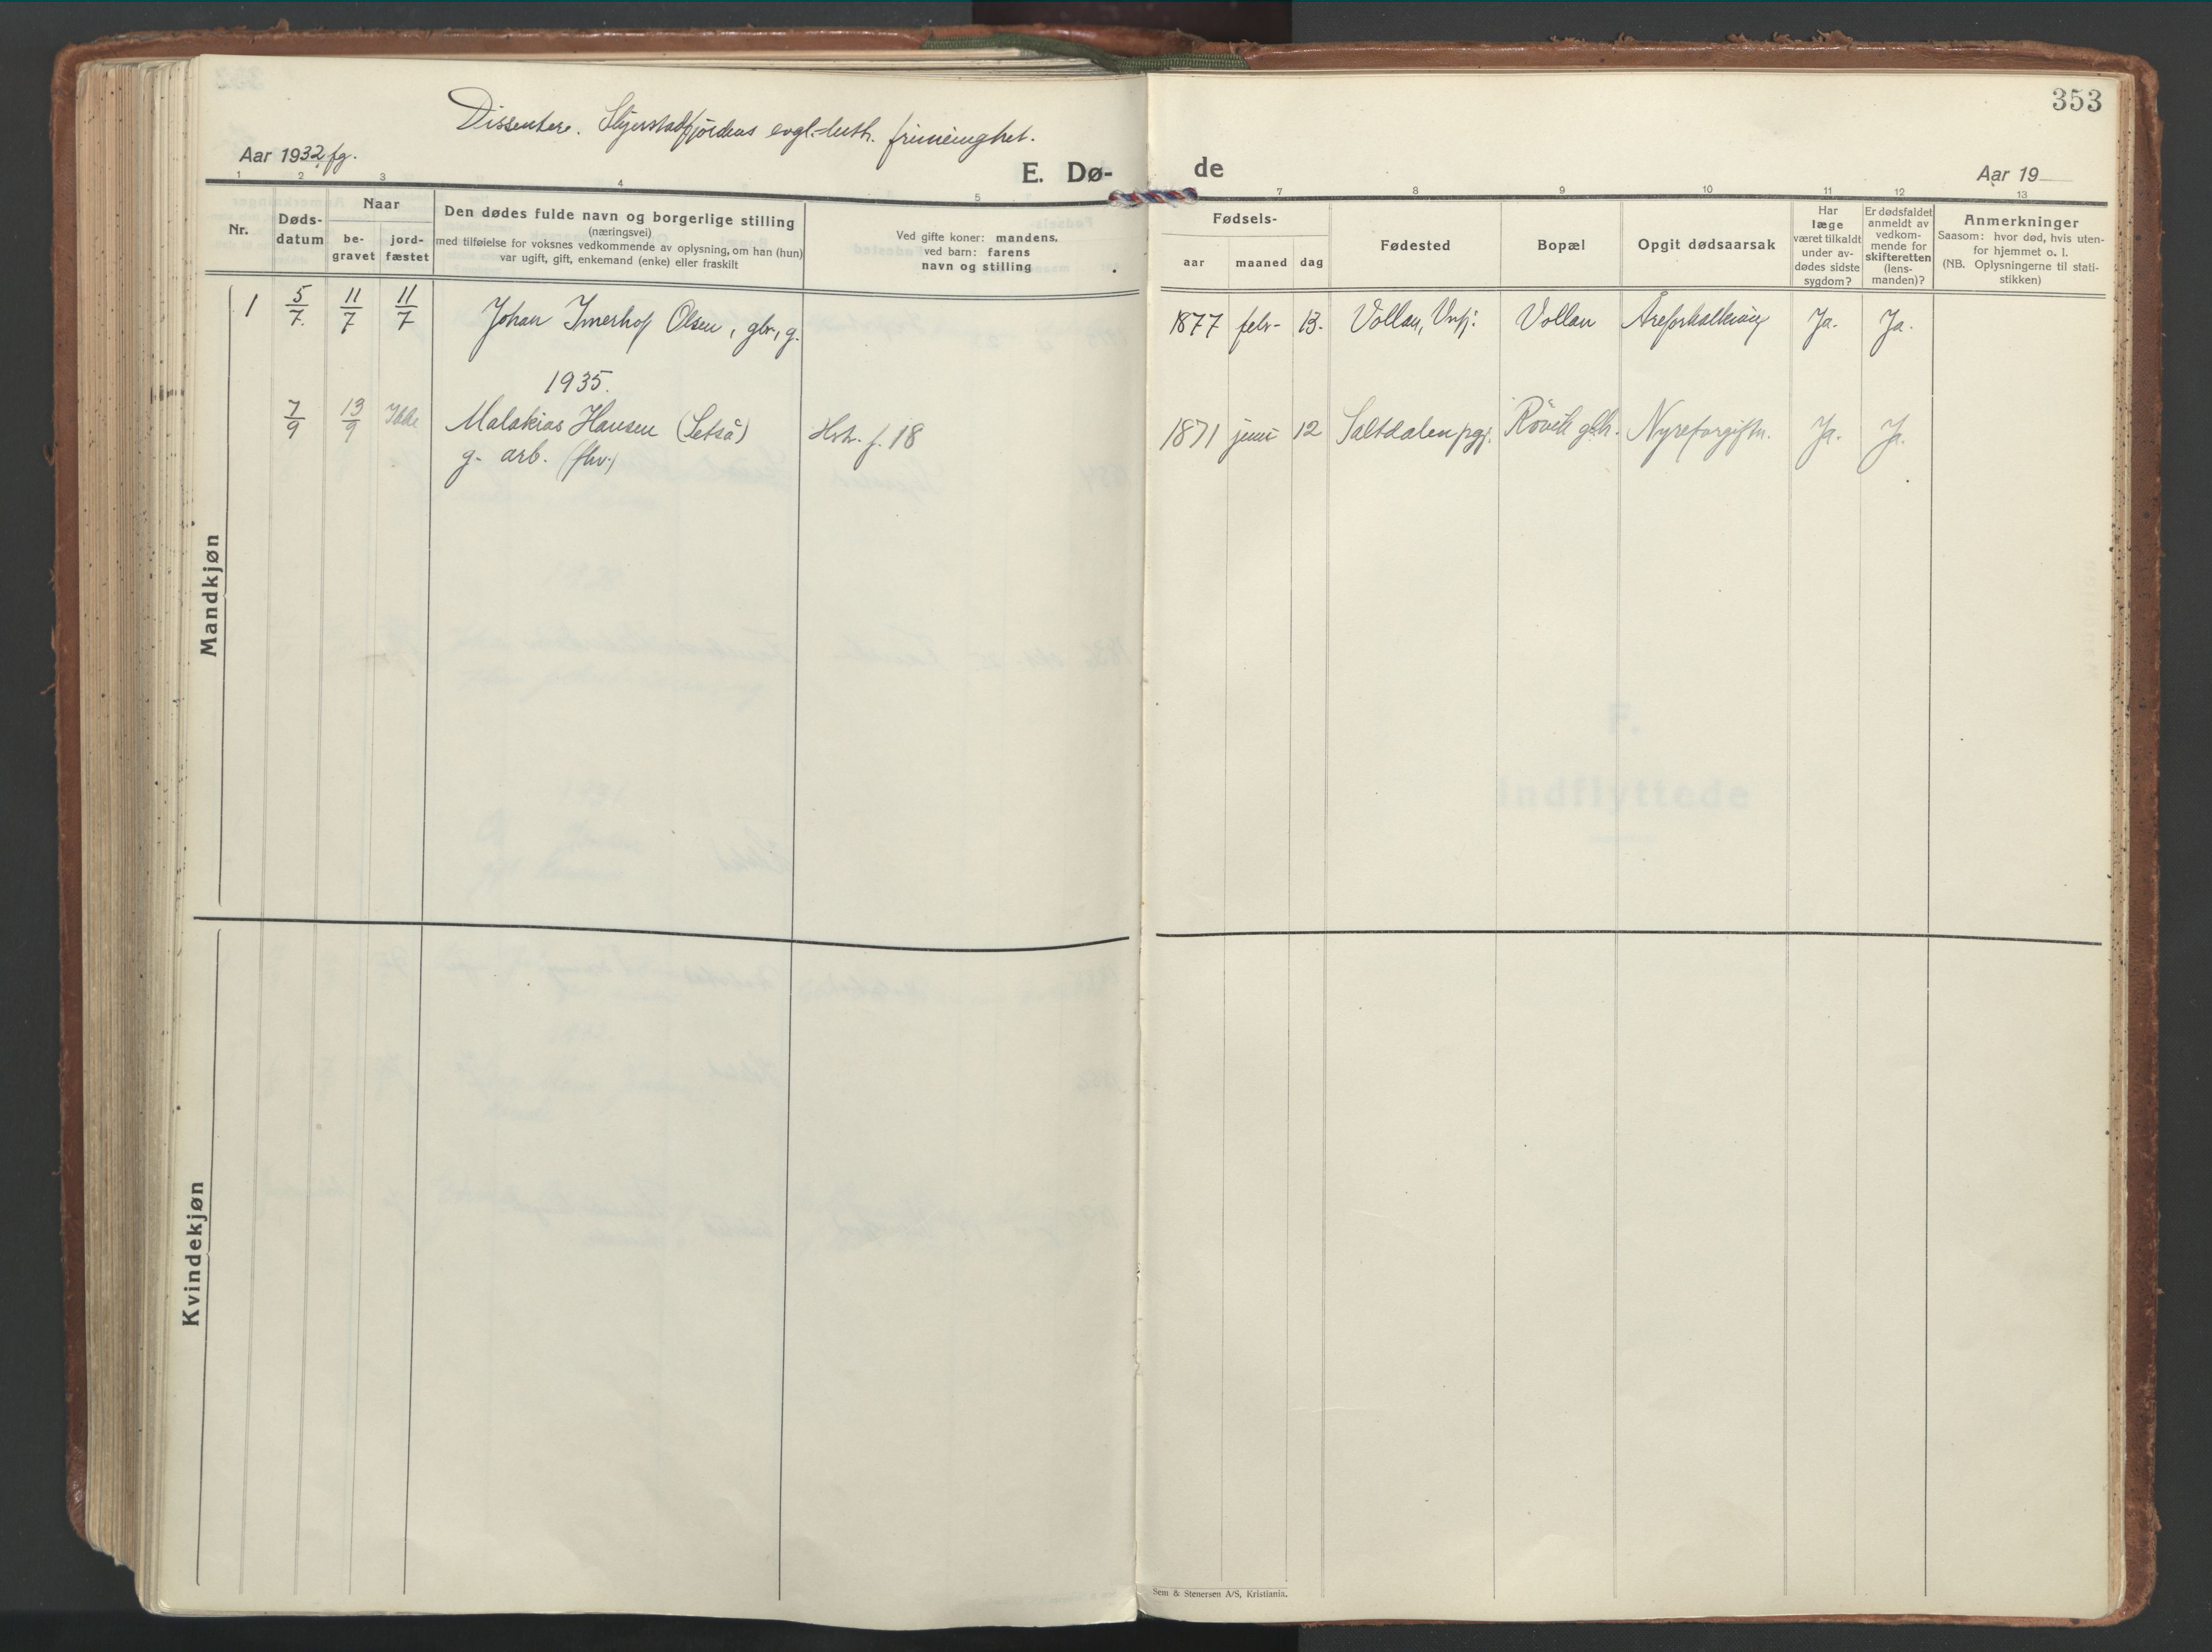 353
Dissentere. Skjerstadfjordens evgl.-luth. frimenighet.
Aar 1932 fg.
E. Dø-
de
Aar 19
1 2 3 4 5 7 8 9 10 11 12 13
Nr.
Døds-
datum
Naar
be-
gravet
jord-
fæstet
Den dødes fulde navn og borgerlige stilling
(næringsvei)
med tilføielse for voksnes vedkommende av oplysning, om han (hun)
var ugift, gift, enkemand (enke) eller fraskilt
Ved gifte koner: mandens,
ved barn: farens
navn og stilling
Fødsels-
aar maaned dag
Fødested
Bopæl
Opgit dødsaarsak
Har
læge
været tilkaldt
under av-
dødes sidste
sygdom?
Er dødsfaldet
anmeldt av
vedkom-
mende for
skifteretten
(lens-
manden)?
Anmerkninger
Saasom: hvor død, hvis uten-
for hjemmet o. l.
(NB. Oplysningerne til stati-
stikken)
Mandkjøn
1 5/7. 11/7 11/7 Johan Imerhof Olsen, gbr., g. 1877 febr- 13. Vollan, Vollan Åreforkalkning Ja. Ja.
1935.
7/9 13/9 Ikke Malakias Hansen (Setså) Hvh. f. 18 1871 juni 12 Saltdalen pgj. Røvik glh. Nyreforgiftn. Ja. Ja.
g. arb. (fhv.)
Kvindekjøn
F.
Indflyttede
Sem & Stenersen A/S, Kristiania.